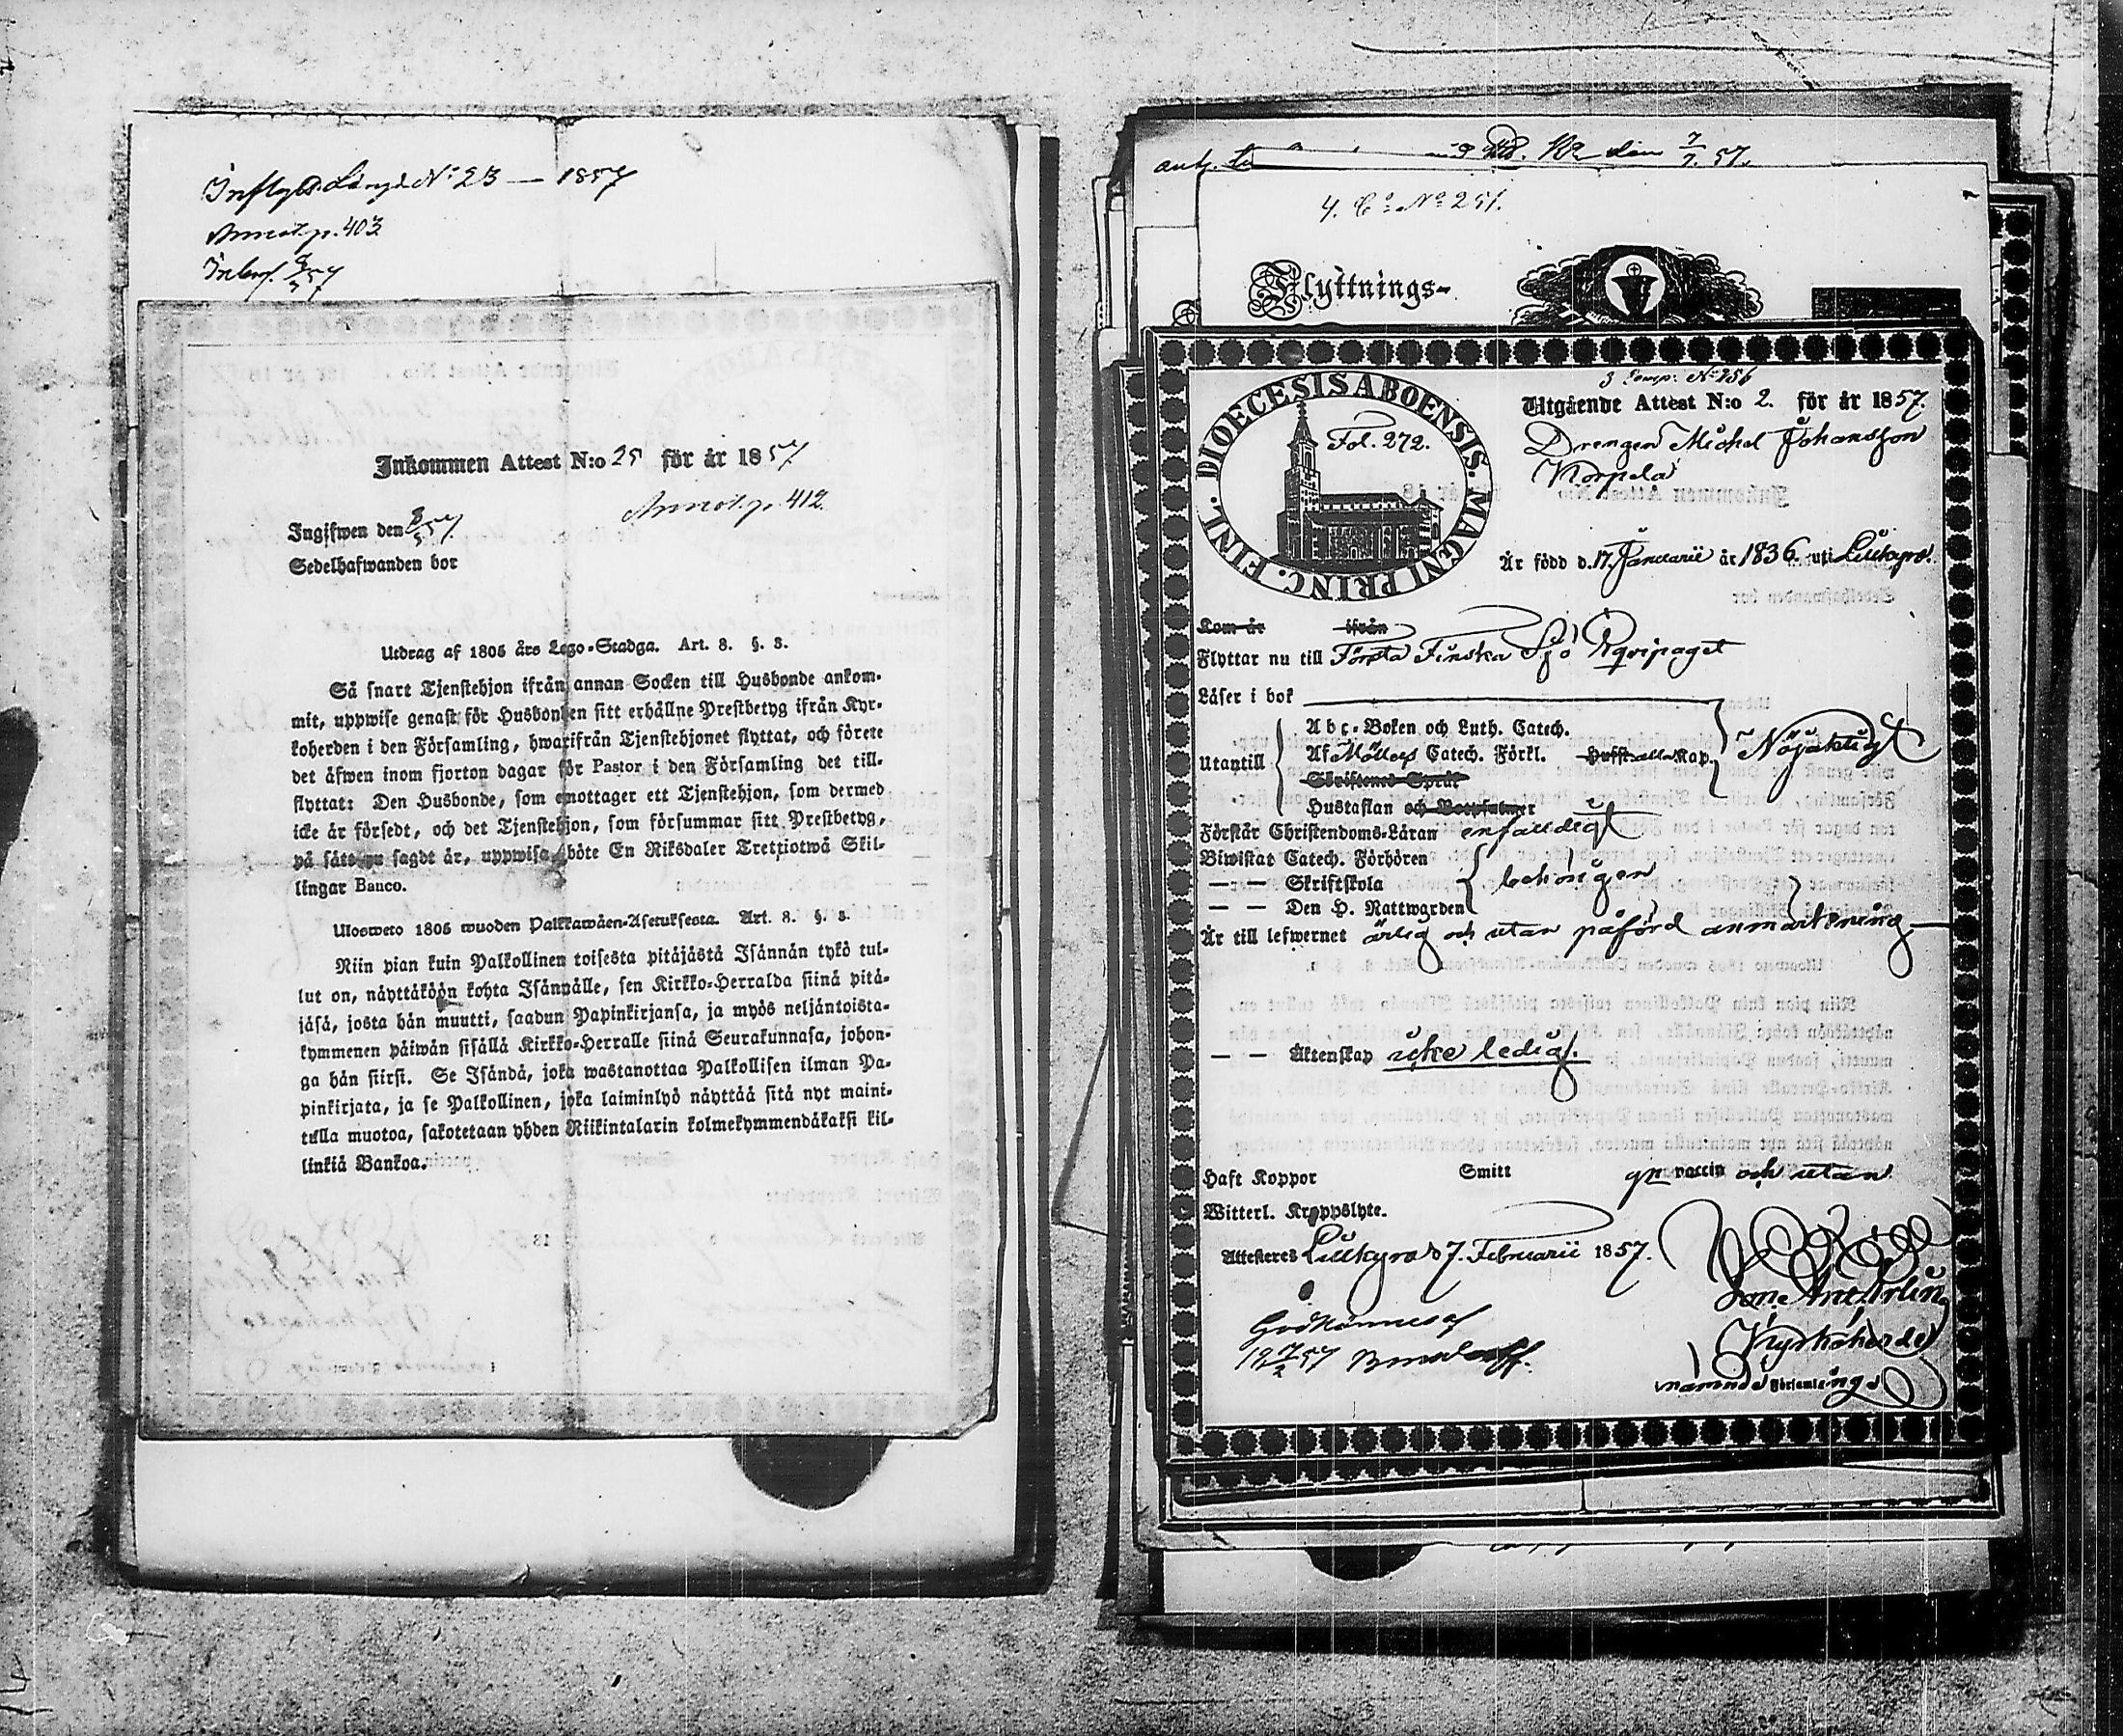 Inflyttn. Längd No: 23 — 1857
Annot. p. 403
Inkommen Attest N:o 25 för år 1857
Annot. p. 412
Ingifwen den
Sedelhafwanden bor
Utdrag af 1805 års Lego-Stadga. Art. 8. §. 3.
Så snart Tjenstehjon ifrån annan Socken till Husbonde ankom-
mit, uppwise genast för Husbonden sitt erhållne Prestbetyg ifrån Kyr-
koherden i den Församling, hwarifrån Tjenstehjonet flyttat, och förete
det äfwen inom fjorton dagar för Pastor i den Församling det till-
flyttat: Den Husbonde, som emottager ett Tjenstehjon, som dermed
icke är försedt, och det Tjenstehjon, som försummar sitt Prestbetyg,
på sätt nu sagdt är, uppwisa, böte En Riksdaler Trettiotwå Skil-
lingar Banco.
Uloswето 1805 wuoden Palkkawäen-Asetuksesta. Art. 8. §. 3.
Niin pian kuin Palkollinen toisesta pitäjästä Isännän tykö tul-
lut on, näyttäköön kohta Isännälle, sen Kirkko-Herralda siinä pitä-
jäsä, josta hän muutti, saadun Papinkirjansa, ja myös neljäntoista-
kymmenen päiwän sisällä Kirkko-Herralle siinä Seurakunnasa, johon-
ga hän siirsi. Se Isändä, joka wastanottaa Palkollisen ilman Pa-
pinkirjata, ja se Palkollinen, joka laiminlyö näyttää sitä nyt maini-
tulla muotoa, sakotetaan yhden Riikintalarin kolmekymmendäkaksi kil-
linkiä Bankoa.
den 7/7. 57.
4. Co No 251.
Flyttnings-
3 Comp: No 156
DIOECESIS ABOENSIS. MAGNI PRINC. FINL.
Fol. 272.
Utgående Attest N:o 2. för år 1857.
Drengen Michel Johansson
Korpela
Är född d. 17 Januarii år 1836. uti Lillkyro.
Kom år ifrån
Flyttar nu till Första Finska Sjö Eqvipaget
Läser i bok
Abc-Boken och Luth. Catech.
Utantill Af Möllers Catech. Förkl. Kap. Nöjaktigt
Skriftenes Språk
Hustaflan och Botpsalmer
Förstår Christendoms-Läran enfaldigt
Biwistat Catech. Förhören
— — Skriftskola behörigen
— — Den H. Nattwarden
Är till lefwernet ärlig och utan påförd anmärkning
— — Äktenskap icke ledigt.
Haft Koppor Smitt gn vaccin och utan
Witterl. Kroppslyte.
Attesteres Lillkyro d 7. Februarii 1857.
Godkännes af
Kyrkoherde
nämnde Församling